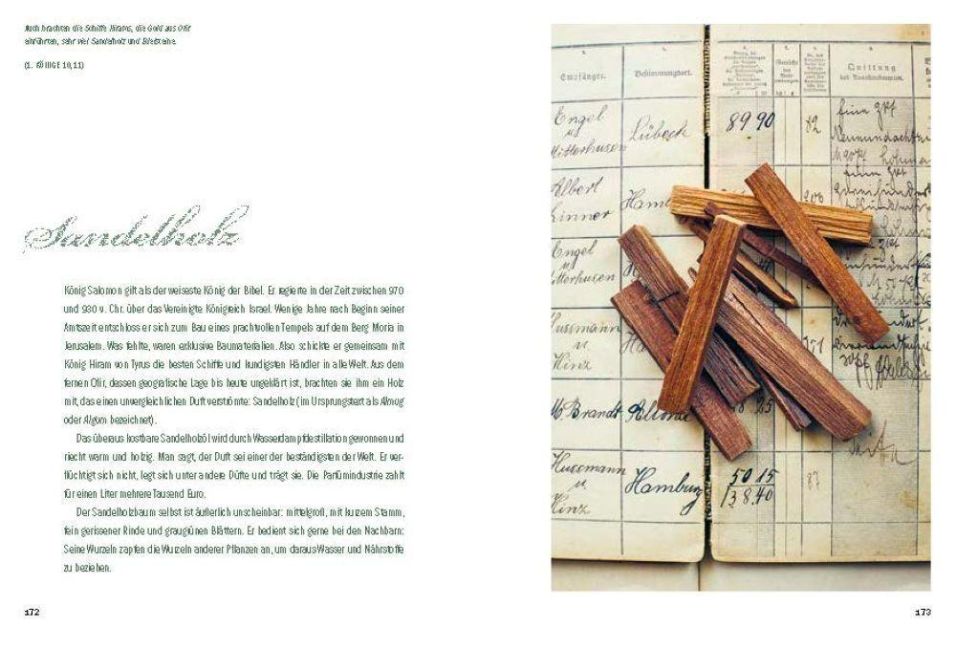 Auch brachten die Schiffe Hirams, die Gold aus Ofir
einführten, sehr viel Sandelholz und Edelsteine.
(1. KÖNIGE 10,11)
Sandelholz
König Salomon gilt als der weiseste König der Bibel. Er regierte in der Zeit zwischen 970
und 930 v. Chr. über das Vereinigte Königreich Israel. Wenige Jahre nach Beginn seiner
Amtszeit entschloss er sich zum Bau eines prachtvollen Tempels auf dem Berg Moria in
Jerusalem. Was fehlte, waren exklusive Baumaterialien. Also schickte er gemeinsam mit
König Hiram von Tyrus die besten Schiffe und kundigsten Händler in alle Welt. Aus dem
fernen Ofir, dessen geografische Lage bis heute ungeklärt ist, brachten sie ihm ein Holz
mit, das einen unvergleichlichen Duft verströmte: Sandelholz (im Ursprungstext als Almug
oder Algum bezeichnet).
Das überaus kostbare Sandelholzöl wird durch Wasserdampfdestillation gewonnen und
riecht warm und holzig. Man sagt, der Duft sei einer der beständigsten der Welt. Er ver-
flüchtigt sich nicht, legt sich unter andere Düfte und trägt sie. Die Parfümindustrie zahlt
für einen Liter mehrere Tausend Euro.
Der Sandelholzbaum selbst ist äußerlich unscheinbar: mittelgroß, mit kurzem Stamm,
fein gerissener Rinde und graugrünen Blättern. Er bedient sich gerne bei den Nachbarn:
Seine Wurzeln zapfen die Wurzeln anderer Pflanzen an, um daraus Wasser und Nährstoffe
zu beziehen.
172
Empfänger. Bestimmungsort. Quittung
Engel
u
Mitterhusen Lübeck 89 90 82
Albert
Linner Ham 200
Engel
u
Hussmann
u
Hinz Ha 251
M. Brandt
Hussmann
u
Hinz Hamburg 50 15 87
138.40
173